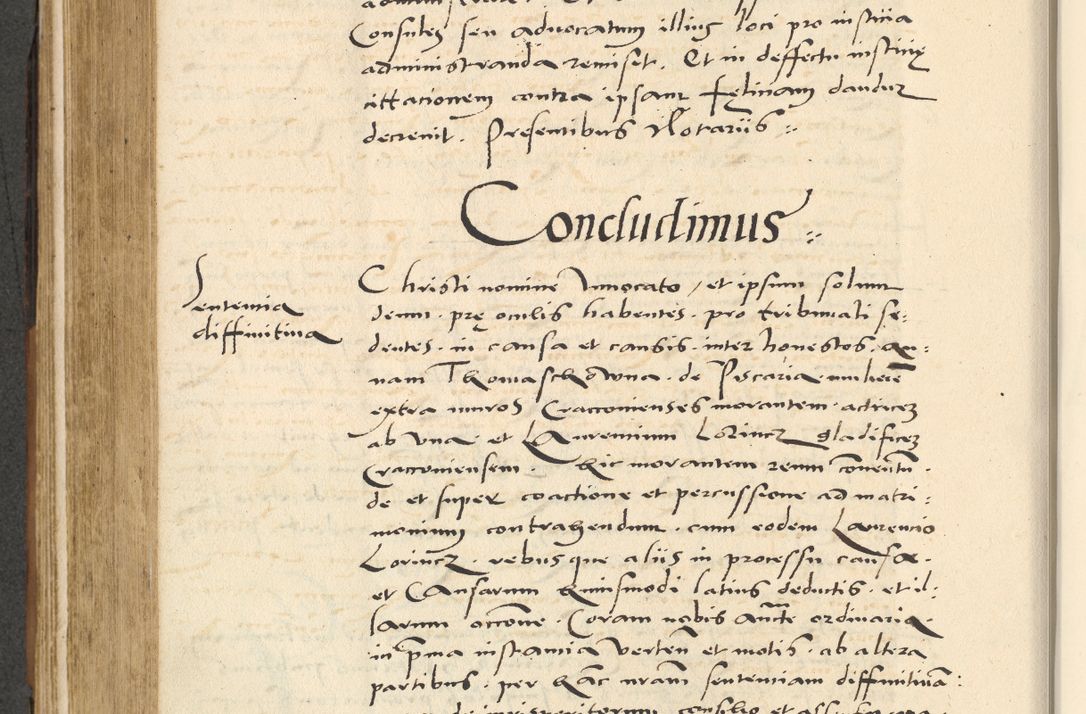 Consules seu aduocatum illius loci pro insticia
administranda remiset. Et in deffectu insticię
cittacionem contra ipsam Fęliciam dandur
decreuit. Presentibus Notariis :.
Concludimus :.
Sententia
diffinitiua
Christi nomine Innocato, et ipsum solum
deum. prę oculis habentes. pro tribunali se:
dentes. in causa et causis. inter honestos. an:
nam Thomaschowna. de Piscaria mulierē
extra muros Cracouienses morantem. actricem
ab vna. et Laurentium Lorincz gladificem
Cracouiensem. hic morantem reum conuentū.
de et super coactione et percussione ad matri:
monium contrahendum. cum eodem Laurencio
Lorincz. rebusque aliis in processu causę.
et Causarum huiusmodi latius deductis. et il:
larum occōne. Coram nobis aucte ordinaria.
in pma instancia verten et motis. ab altera
partibus. per hāc nram sententiam diffinitiuā: